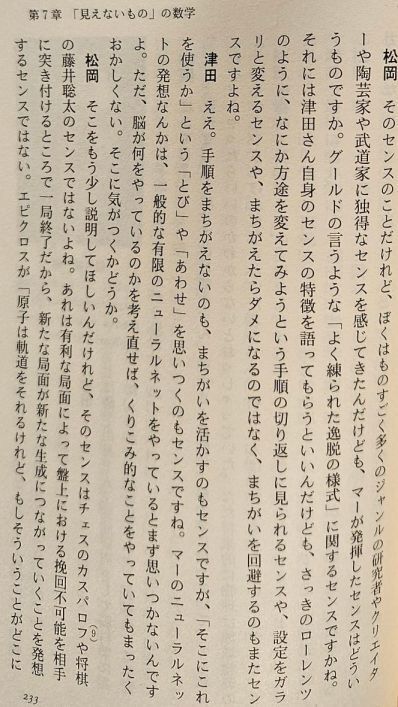 第7章 「見えないもの」の数学
松岡 そのセンスのことだけれど、ぼくはものすごく多くのジャンルの研究者やクリエイタ
ーや陶芸家や武道家に独得なセンスを感じてきたんだけども、マーが発揮したセンスはどうい
うものですか。グールドの言うような「よく練られた逸脱の様式」に関するセンスですかね。
それには津田さん自身のセンスの特徴を語ってもらうといいんだけども、さっきのローレンツ
のように、なにか方途を変えてみようという手順の切り返しに見られるセンスや、設定をガラ
リと変えるセンスや、まちがえたらダメになるのではなく、まちがいを回避するのもまたセン
スですよね。
津田 ええ。手順をまちがえないのも、まちがいを活かすのもセンスですが、「そこにこれ
を使うか」という「とび」や「あわせ」を思いつくのもセンスですね。マーのニューラルネッ
トの発想なんかは、一般的な有限のニューラルネットをやっているとまず思いつかないんです
よ。ただ、脳が何をやっているのかを考え直せば、くりこみ的なことをやっていてもまったく
おかしくない。そこに気がつくかどうか。
松岡 そこをもう少し説明してほしいんだけれど、そのセンスはチェスのカスパロフや将棋
(9)
の藤井聡太のセンスではないよね。あれは有利な局面によって盤上における挽回不可能を相手
に突き付けるところで一局終了だから、新たな局面が新たな生成につながっていくことを発想
するセンスではない。エピクロスが「原子は軌道をそれるけれど、もしそういうことがどこに
233